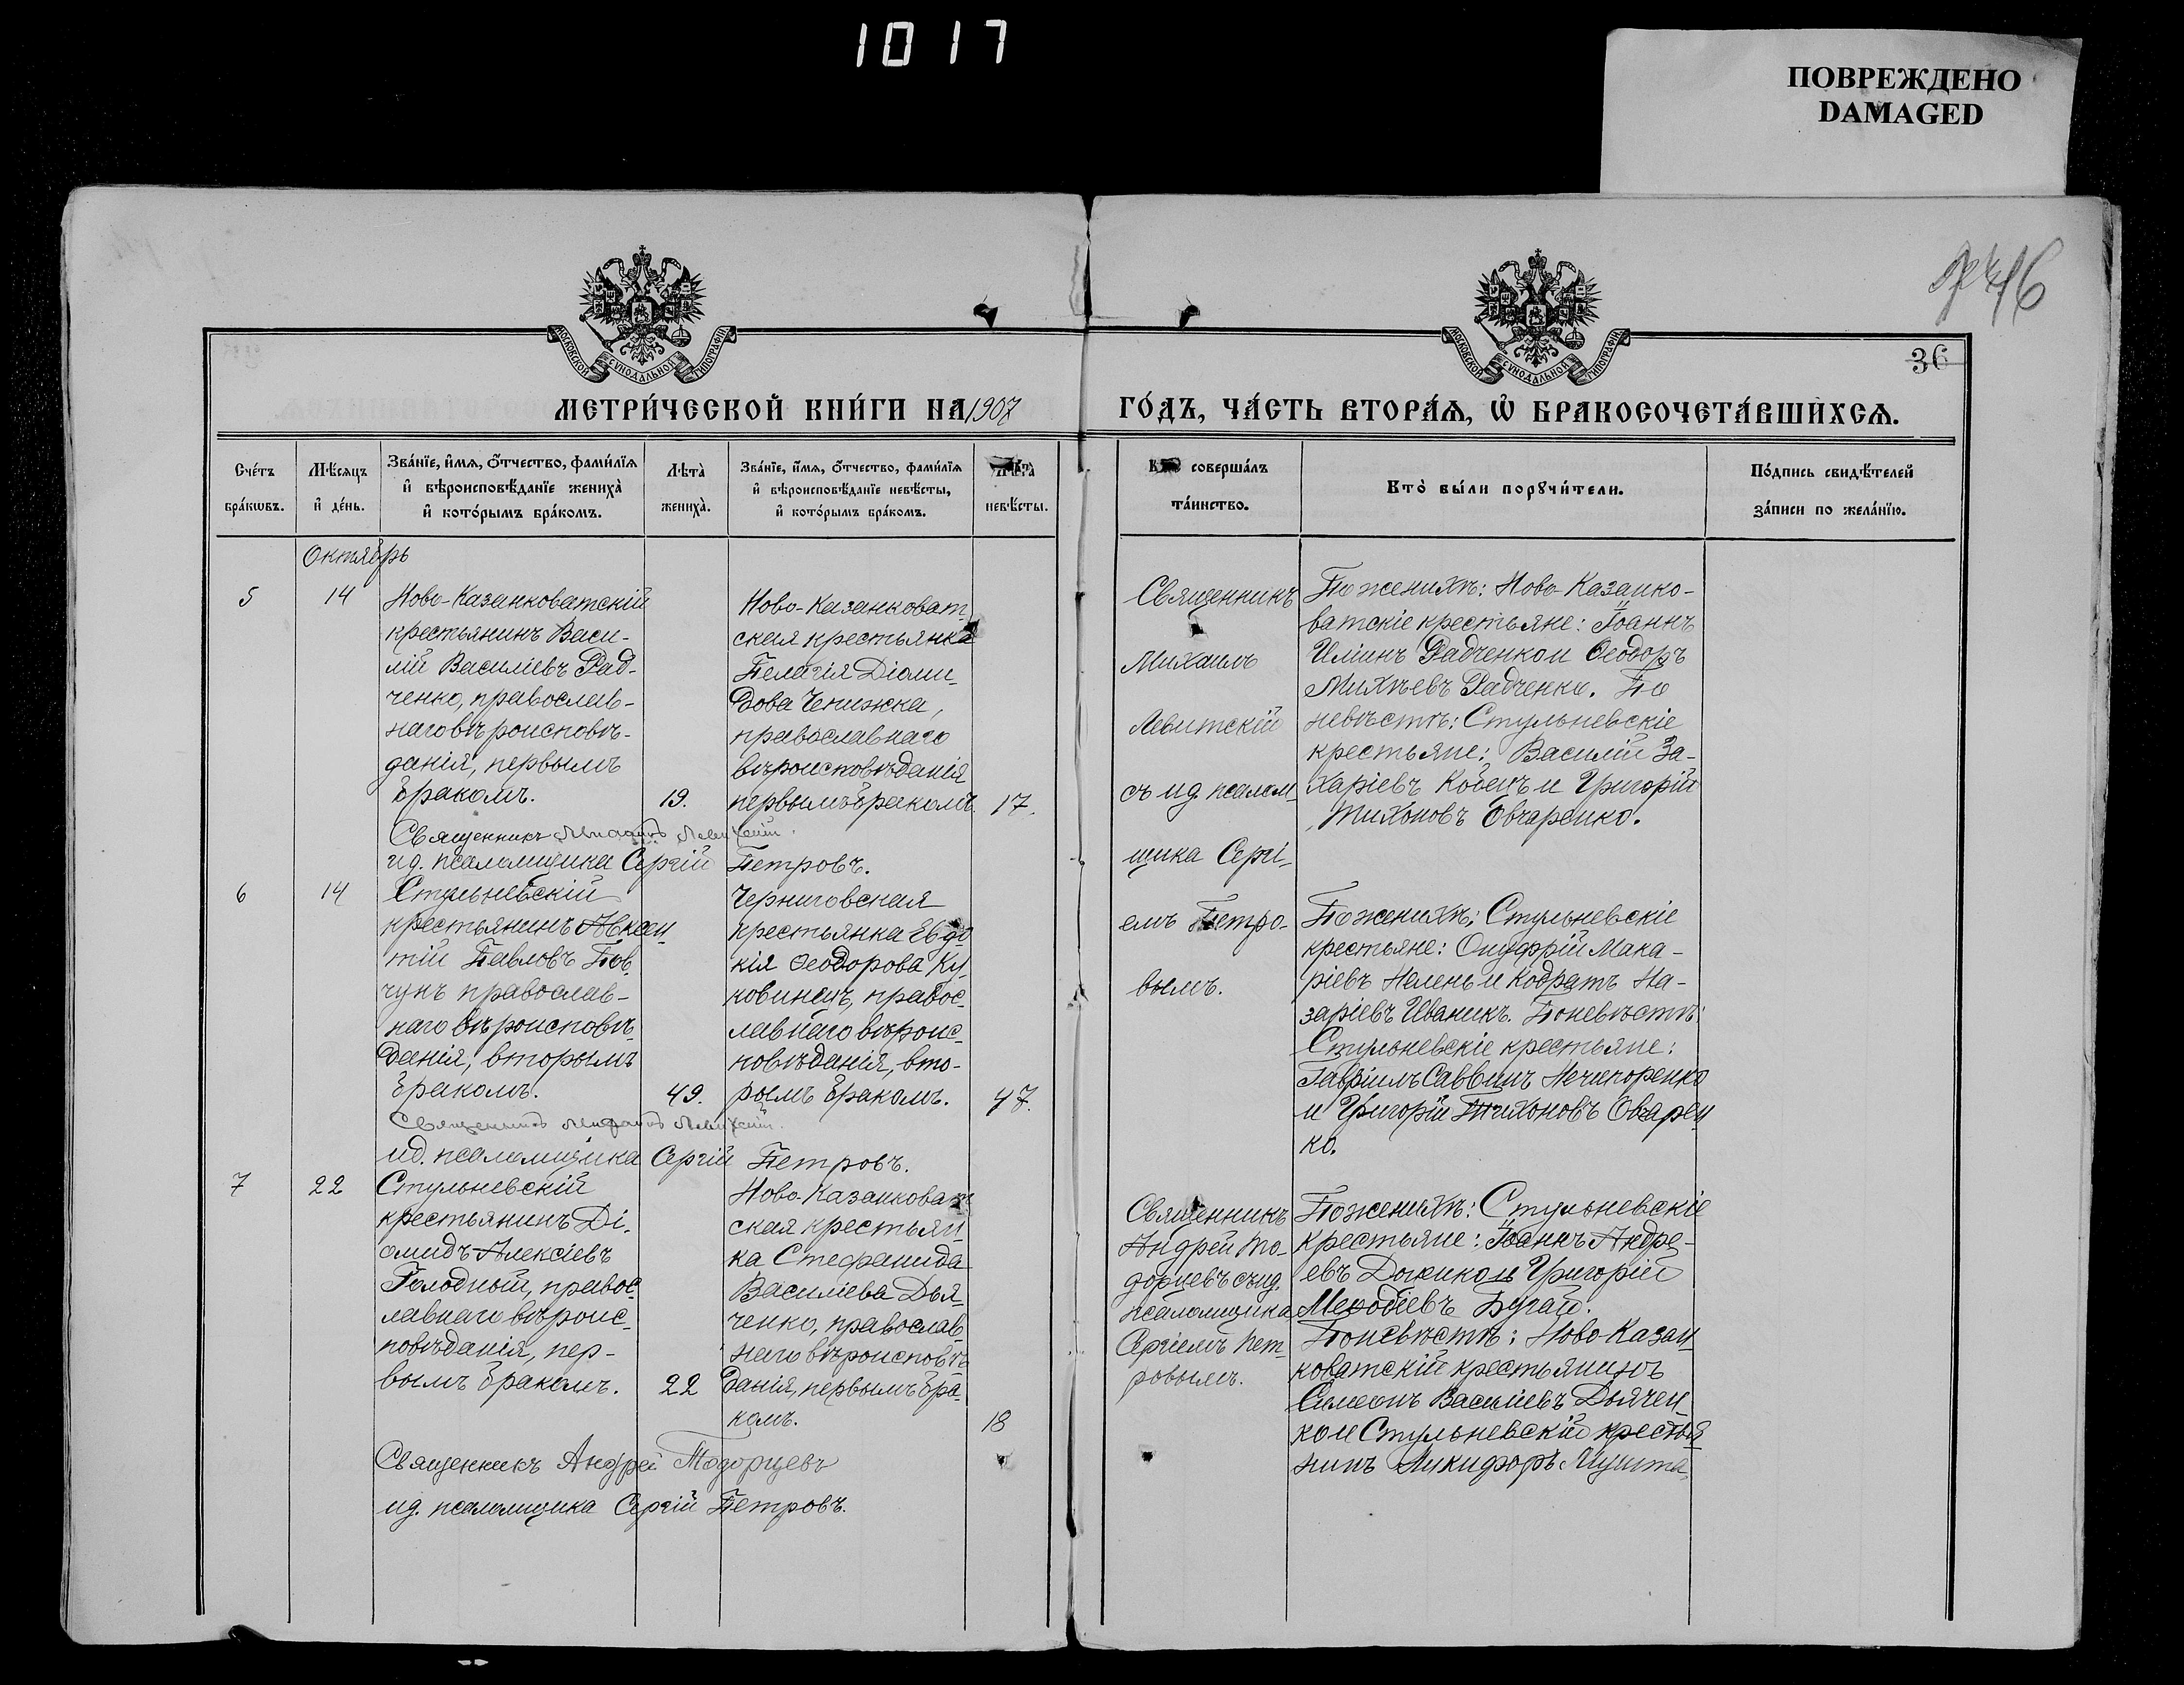 1017
ПОВРЕЖДЕНО
DAMAGED
36
МОСКОВСКОЙ СѴНОДАЛЬНОЙ ТИПОГРАФІИ
МОСКОВСКОЙ СѴНОДАЛЬНОЙ ТИПОГРАФІИ
МЕТРИ́ЧЕСКОЙ КНИ́ГИ НА 1907
ГО́ДЪ, ЧА́СТЬ ВТОРА́Я, Ѽ БРАКОСОЧЕТА́ВШИХСѦ.
Сче́тъ
бра́кѡвъ.
Мѣ́сяцъ
и҆ де́нь.
Зва́нїе, и҆́мѧ, ѻ҆́тчество, фами́лїѧ
и҆ вѣроисповѣ́данїе жениха̀
и҆ кото́рымъ бра́комъ.
Лѣта̀
жениха̀.
Зва́нїе, и҆́мѧ, ѻ҆́тчество, фами́лїѧ
и҆ вѣроисповѣ́данїе невѣ́сты,
и҆ кото́рымъ бра́комъ.
Лѣта̀
невѣ́сты.
Кто̀ соверша́лъ
та́инство.
Кто̀ бы́ли порꙋчи́тели.
По́дпись свидѣ́телей
за́писи по жела́нїю.
Октябрь
5
14
Ново-Казанковатскій
крестьянинъ Васи-
лій Василіевъ Рад-
ченко, православ-
наго вѣроисповѣ-
данія, первымъ
бракомъ.
19.
Ново-Казанковат-
ская крестьянка
Пелагія Діоми-
дова Чепижка,
православнаго
вѣроисповѣданія
первымъ бракомъ.
17.
Священникъ
Михаилъ
Левитскій
съ ид. псалом-
щика Сергі-
емъ Петро-
вымъ.
По женихѣ: Ново-Казанко-
ватскіе крестьяне: Іоаннъ
Иліинъ Радченко и Ѳеодоръ
Михѣевъ Радченко. По
невѣстѣ: Стульневскіе
крестьяне: Василій За-
харіевъ Кобецъ и Григорій
Тихоновъ Овчаренко.
Священникъ Михаилъ Левитскій.
ид. псаломщика Сергій Петровъ.
6
14
Стульневскій
крестьянинъ Авксен-
тій Павловъ Пов-
чунъ православ-
наго вѣроисповѣ-
данія, вторымъ
бракомъ.
49.
Черниговская
крестьянка Евдо
кія Ѳеодорова Ку-
ковинецъ, правос-
лавнаго вѣроис-
повѣданія, вто-
рымъ бракомъ.
47.
По женихѣ: Стульневскіе
крестьяне: Онуфрій Мака-
ріевъ Нелень и Кодратъ На-
заріевъ Иваникъ. По невѣстѣ:
Стульневскіе крестьяне:
Гавріилъ Саввинъ Нечипоренко
и Григорій Тихоновъ Овчарен-
ко.
Священникъ Михаилъ Левитскій.
ид. псаломщика Сергій Петровъ.
7
22
Стульневскій
крестьянинъ Ді-
омидъ Алексіевъ
Голодный, правос-
лавнаго вѣроис-
повѣданія, пер-
вымъ бракомъ.
22
Ново-Казанковат-
ская крестьян-
ка Стефанида
Василіева Дья-
ченко, православ-
наго вѣроисповѣ-
данія, первымъ бра-
комъ.
18
Священникъ
Андрей То-
дорцевъ съ ид.
псаломщика
Сергіемъ Пет-
ровымъ.
По женихѣ: Стульневскіе
крестьяне: Іоаннъ Андре-
евъ и Григорій
Меѳодіевъ Бугай.
По невѣстѣ: Ново-Казан-
коватскій крестьянинъ
Симеонъ Василіевъ Дьячен-
ко и Стульневскій крестья-
нинъ Никифоръ Мушта.
Священникъ Андрей Тодорцевъ
ид. псаломщика Сергій Петровъ.